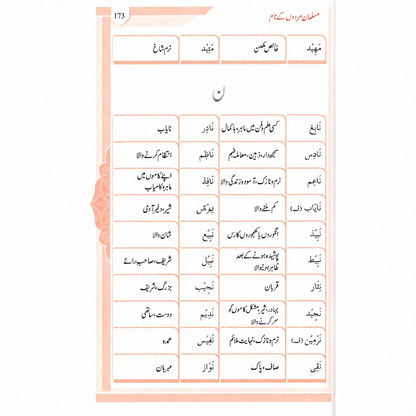 مسلمان مردوں کے نام 173
مَهِيْد خالص مکھن مَيِّد نرم شاخ
ن
نَابِغ کسی علم و فن میں ماہر، باکمال نَادِر نایاب
نَادِس سمجھ دار، ذہین، معاملہ فہم نَاظِم انتظام کرنے والا
نَاعِم نرم و نازک، آسودہ زندگی والا نَافِذ اپنے کاموں میں
ماہر، کامیاب
نَایَاب (ف) کم ملنے والا شیر، دلیر آدمی
نَبِيْذ انگوروں یا کھجوروں کا رس نَبِيْع شان والا
نَبِيْط پوشیدہ ہونے کے بعد نَبِيْل شریف، صاحب رائے
ظاہر ہونے والا
نِثَار قربان نَجِيْب بزرگ، شریف
نَجِيْد بہادر، شیر، مشکل کاموں کو نَدِيْم دوست، ساتھی
سر کرنے والا
نَرْمِيْن (ف) نرم و نازک، نہایت ملائم نَفِيْس عمدہ
نَقِی صاف، پاک نَوَاز مہربان